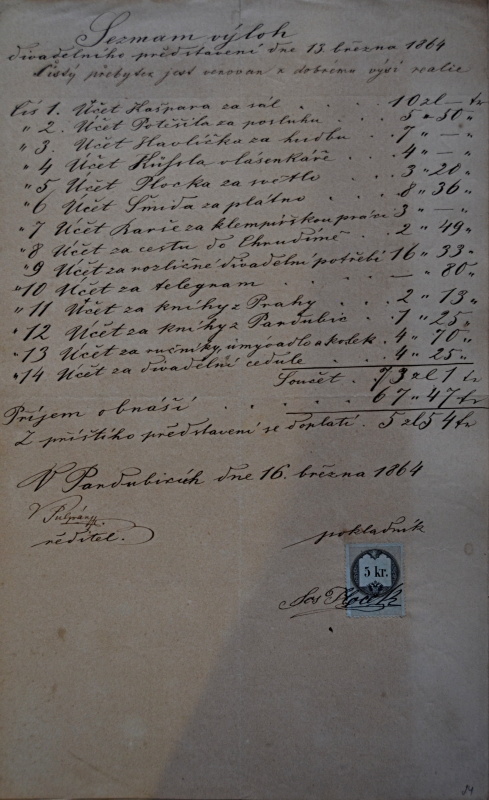 Seznam výloh
divadelního představení dne 13. března 1864
Čistý přebytek jest venován k dobrému vyší realie
Čís 1. Účet Kašpara za sál . . . . 10 zl — kr
" 2. Účet Potěšila za posluhu . . . 5 " 50 "
" 3. Účet Havlíčka za hudbu . . . 7 " — "
" 4 Účet vlasenkáře . . . 4 " — "
" 5 Účet Plocka za světlo . . . 3 " 20 "
" 6 Účet Šmída za plátno . . . 8 " 36 "
" 7 Účet Karše za klempířskou práci 3 " — "
" 8 Účet za cestu do Chrudimě . . 2 " 49 "
" 9 Účet za rozličné divadelní potřeby 16 " 33 "
" 10 Účet za telegram . . . — " 80 "
" 11 Účet za knihy z Prahy . . . 2 " 13 "
" 12 Účet za knihy z Pardubic . 1 " 25 "
" 13 Účet za ručníky, umyvadlo a košek . 4 " 70 "
" 14 Účet za divadelní cedule . . 4 " 25 "
Součet . 73 zl 1 kr
Příjem obnáší . . . . . 67 " 47 kr
Z příštího představení se doplatí . 5 zl 54 kr
V Pardubicích dne 16. března 1864
ředitel.
pokladník
5 kr.
Jos
84